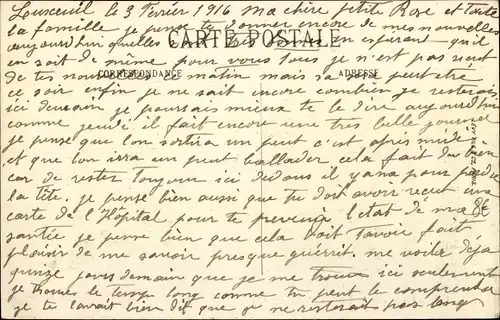 Luxeuil le 3 Février 1916 ma chère petite Rose et toute
la famille je pense te donner encore de mes nouvelles
aujourd'hui quelles sont en espérant quil
CARTE POSTALE
en soit de même pour vous tous je n'est pas recut
de tes nouvelles matin mais sa peut etre
CORRESPONDANCE
ADRESSE
ce soir enfin je ne sait encore combien je resterais
ici demain je pourrais mieux te le dire aujourd'hui
comme jeudi il fait encore une tres belle journée
je pense que lon sortira un peut c'est apres midi
et que lon irra un peut ballader cela fait du bien
car de rester toujour ici dedans il yana pour perdre
la tête. je pense bien aussi que tu doit avoir recut une
carte de l'Hôpital pour te prevenir l'etat de ma
santée je pense bien que cela doit tavoir fait
plaisir de me savoir presque guérrit. me voila deja
quinze jours demain que je me trouve ici seulement
je trouves le temps long comme tu peut le comprendre
je te lavait bien dit que je ne resterait pas long